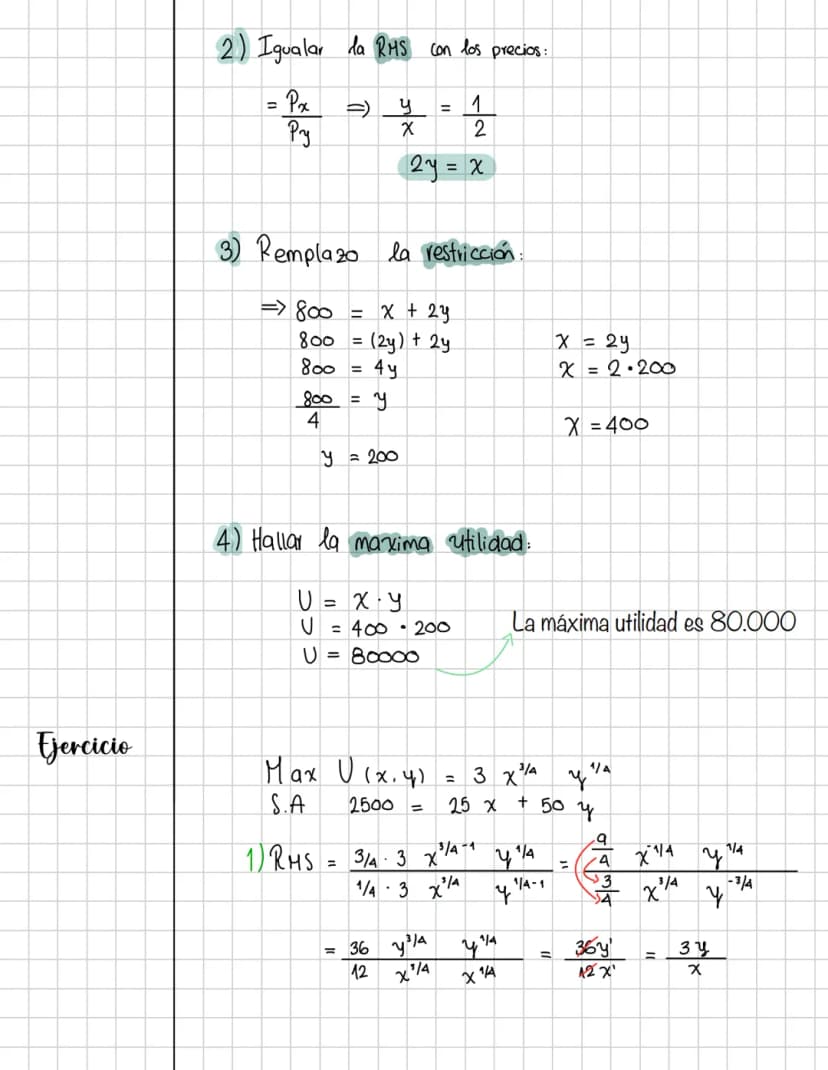 2) Igualar la RMS con los precios:
= Px/Py ⇒ y/x = 1/2
2y = x
3) Remplazo la restricción:
⇒ 800 = x + 2y
800 = (2y) + 2y
x = 2y
800 = 4y
x = 2 · 200
800/4 = y
x = 400
y = 200
4) Hallar la maxima utilidad:
U = x · y
U = 400 · 200
La máxima utilidad es 80.000
U = 80000
Ejercicio
Max U (x, y) = 3 x^3/4 y^1/4
S.A 2500 = 25 x + 50 y
1) RMS = (3/4 · 3 x^3/4-1 y^1/4)/(1/4 · 3 x^3/4 y^1/4-1) = (9/4 x^-1/4 y^1/4)/(3/4 x^3/4 y^-3/4)
= (36 y^3/4 y^1/4)/(12 x^3/4 x^1/4) = 36y^1/12x^1 = 3y/x